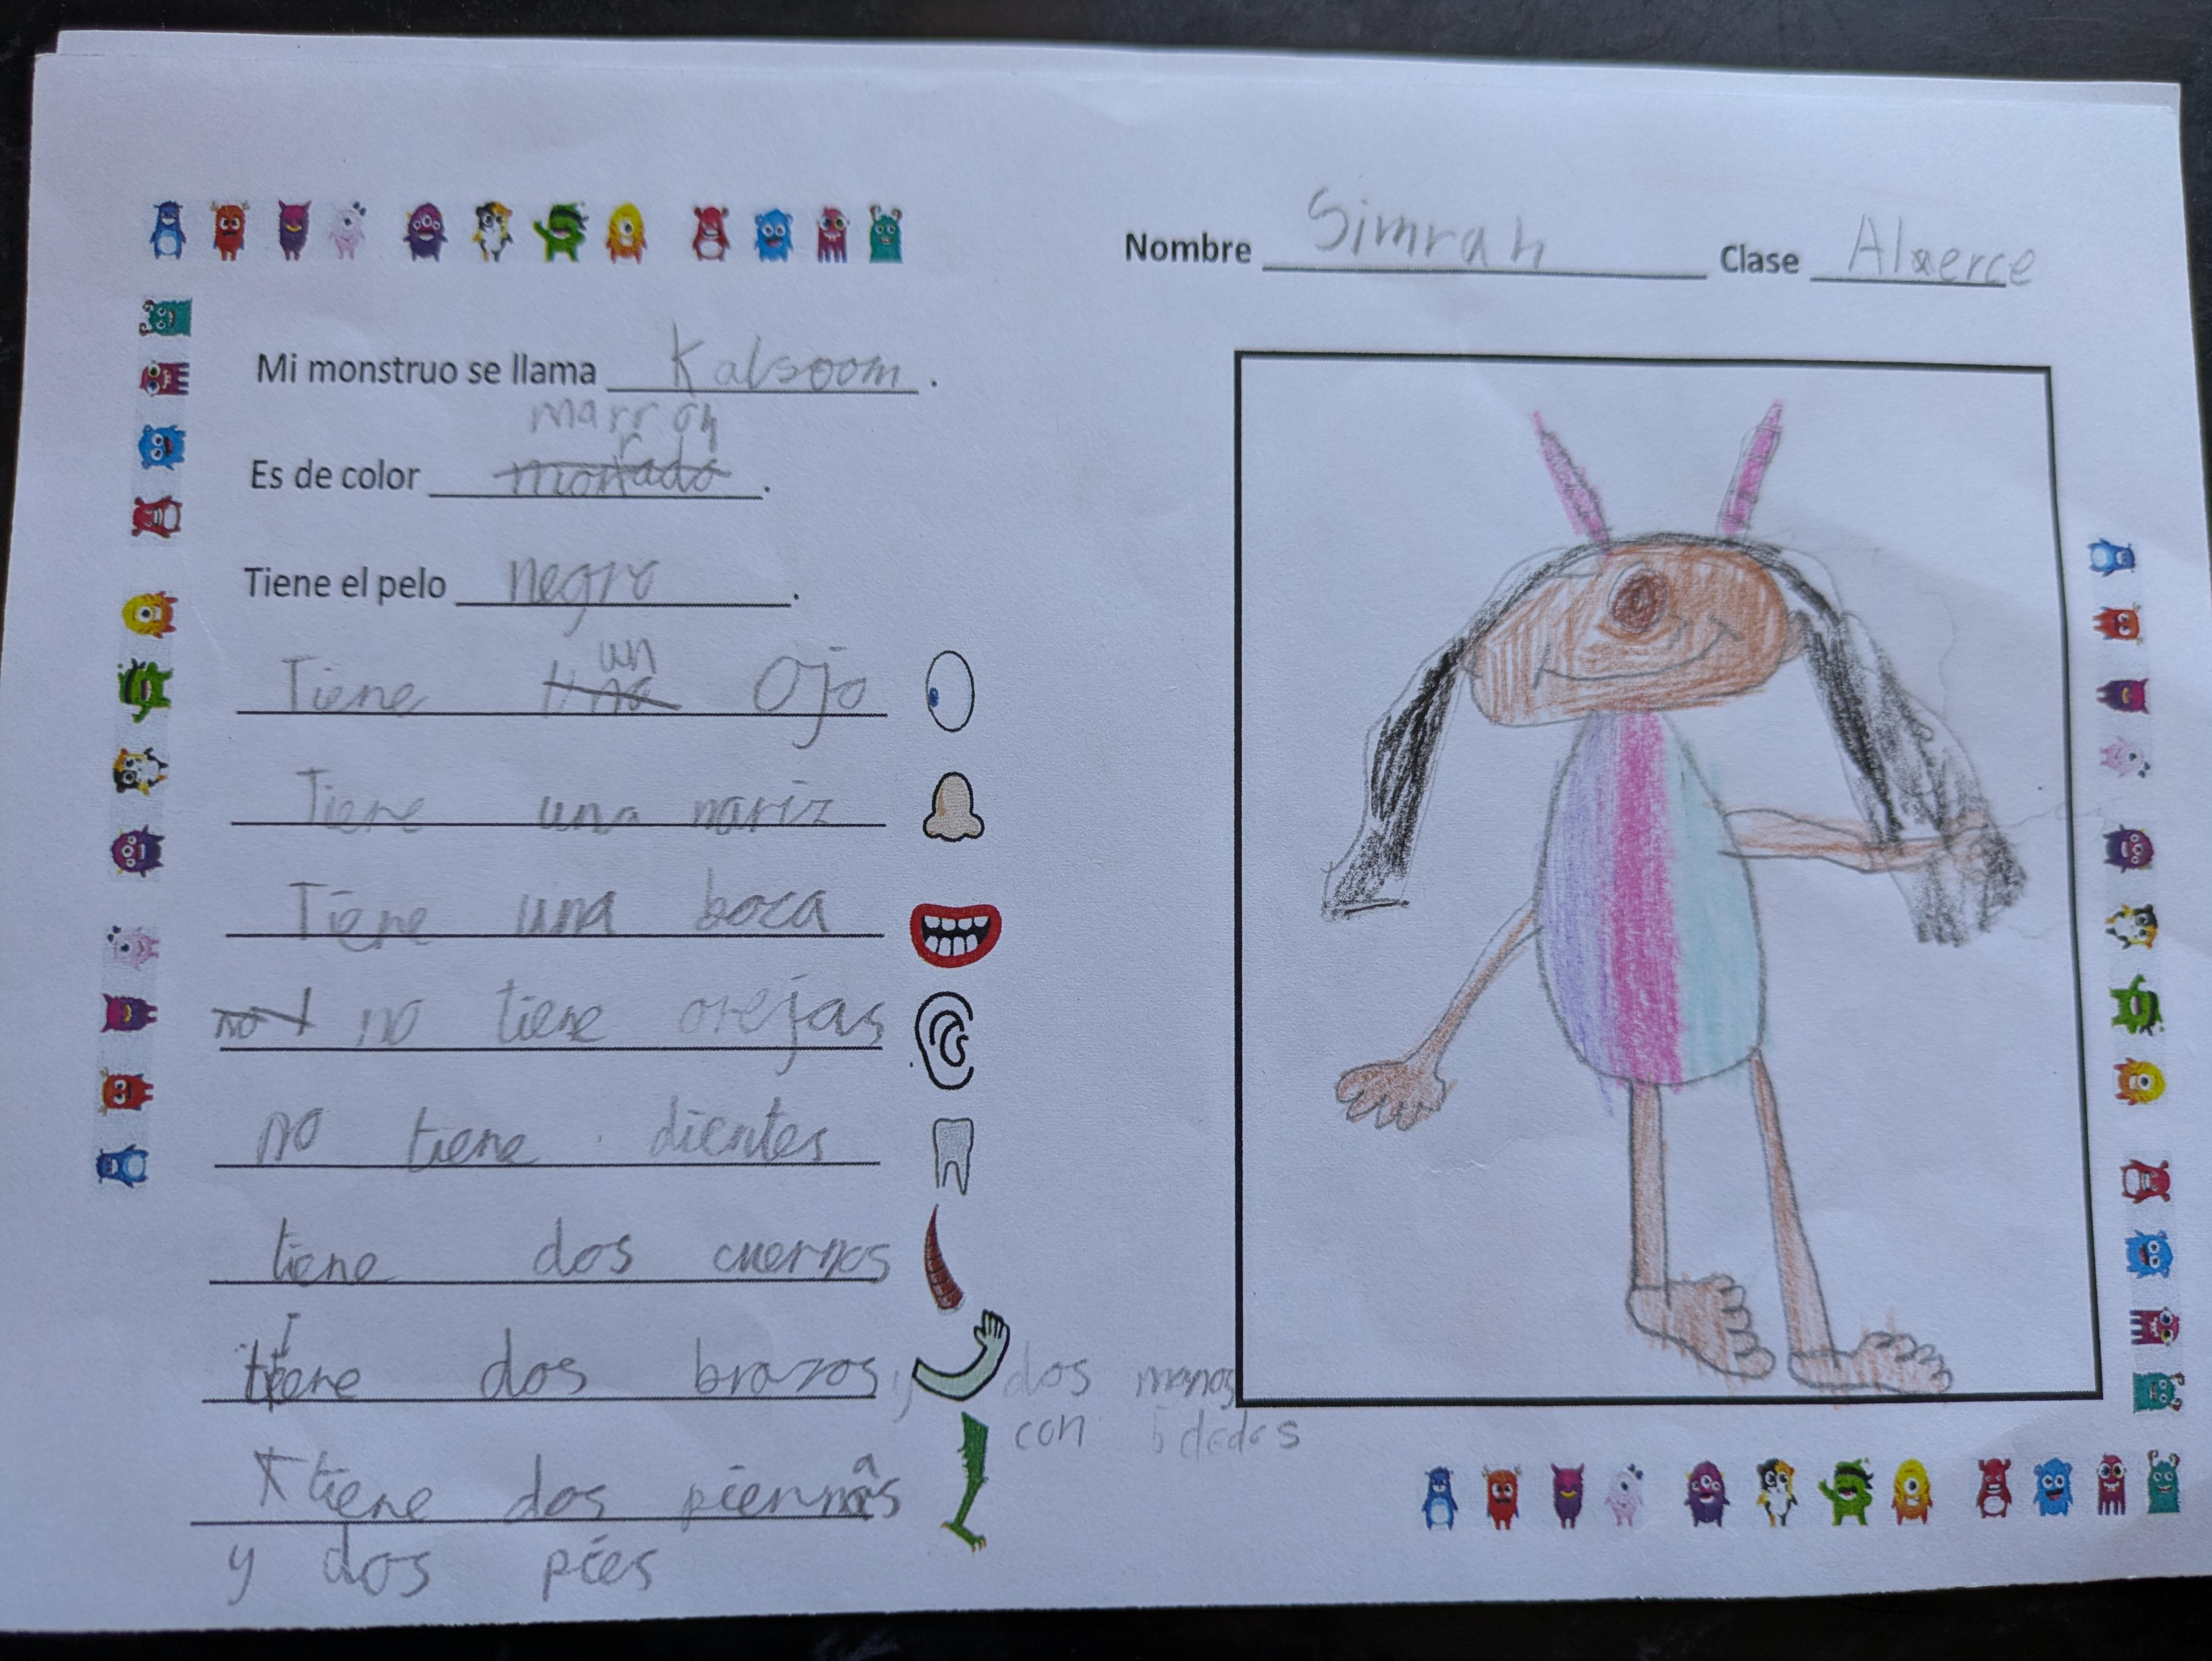 Nombre Simrah Clase Alaerce
Mi monstruo se llama Kalsoom.
marrón
Es de color morado.
Tiene el pelo negro.
un
Tiene una Ojo
Tiene una nariz
Tiene una boca
no t no tiene orejas
no tiene dientes
tiene dos cuernos
Tiene dos brazos y dos manos
con 5 dedos
tiene dos piernas
y dos pies